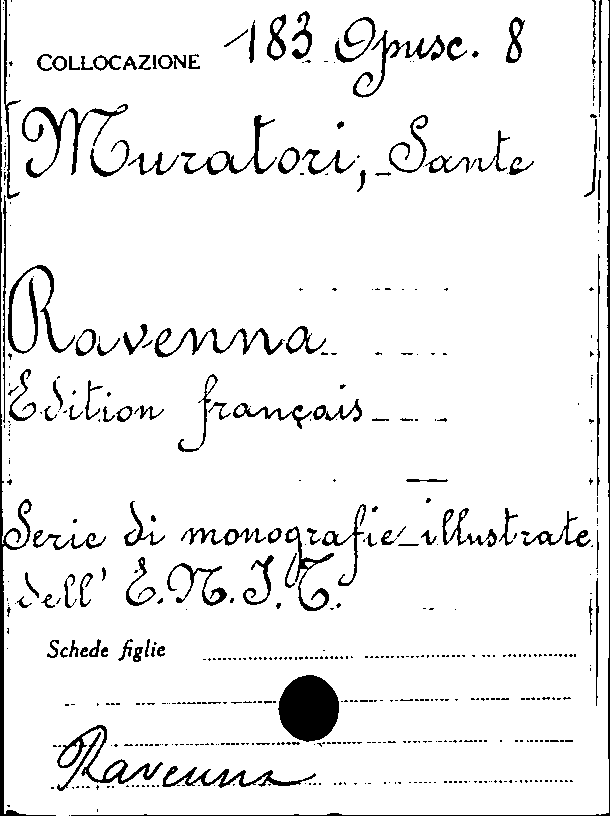 COLLOCAZIONE 183 Opusc. 8
[Muratori, Sante]
Ravenna
Edition français
Serie di monografie illustrate
dell' E.N.I.T.
Schede figlie
Ravenna